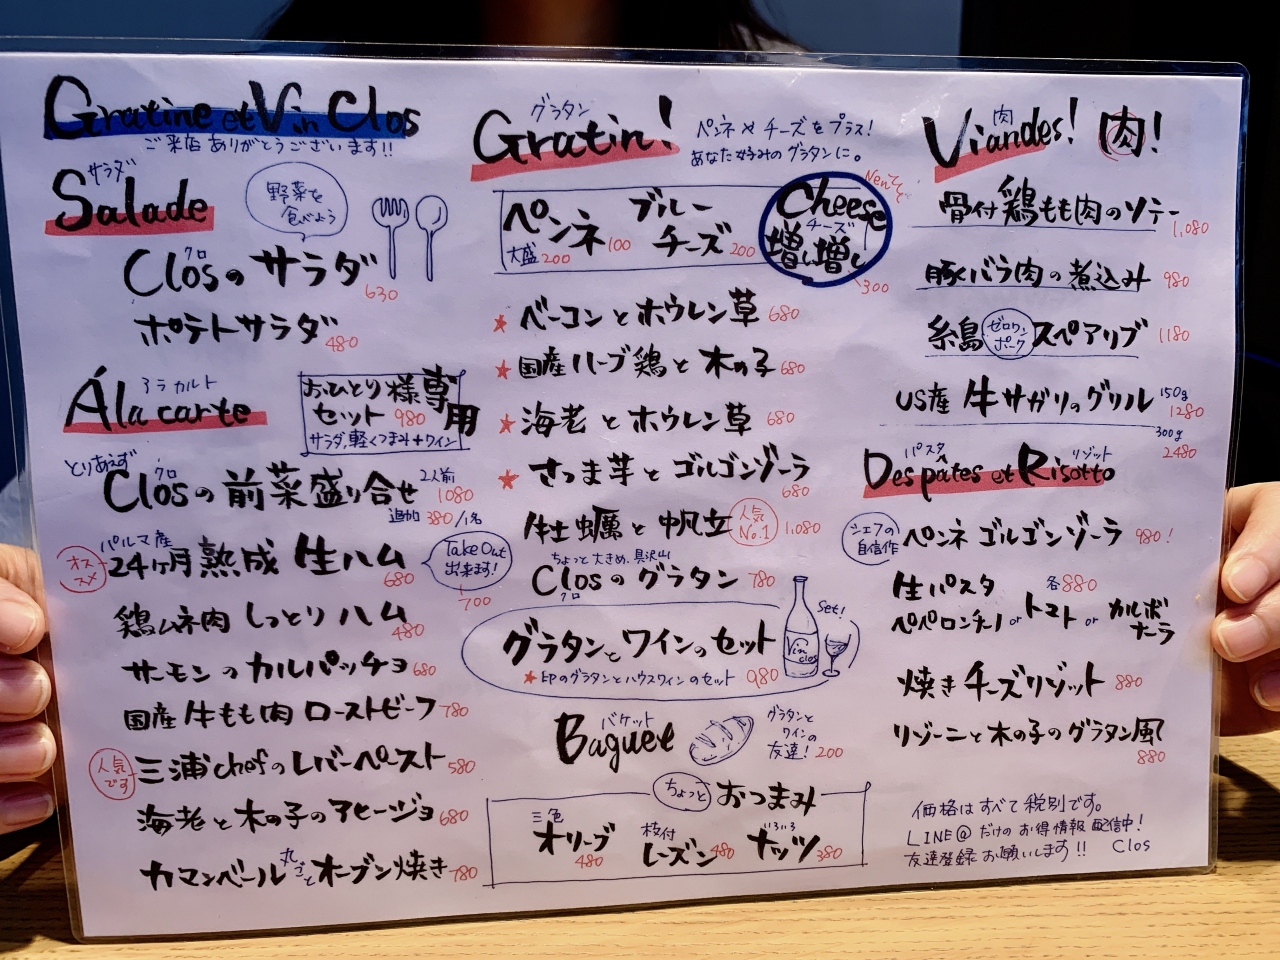 Gratine et Vin Clos
ご来店ありがとうございます!!
サラダ
Salade
野菜を
食べよう
クロ
Closの サラダ
630
ポテトサラダ
480
アラカルト
Á la carte
おひとり様専用
セット 980
サラダ、軽くつまみ+ワイン
とりあえず
クロ
Closの前菜盛り合せ
2人前
1080
追加 380/1名
パルマ産
オススメ
24ヶ月熟成 生ハム
680
Take Out
出来ます!
700
鶏ムネ肉 しっとりハム
480
サーモンのカルパッチョ 680
国産牛もも肉 ローストビーフ 780
人気です
三浦chefのレバーペースト 580
海老と木の子のアヒージョ 680
カマンベール丸ごとオーブン焼き 780
グラタン
Gratin!
ペンネやチーズをプラス!
あなた好みのグラタンに。
ペンネ 100
大盛 200
ブルーチーズ 200
New
Cheese
チーズ
増し増し
300
★ ベーコンとホウレン草 680
★ 国産ハーブ鶏と木の子 680
★ 海老とホウレン草 680
★ さつま芋とゴルゴンゾーラ
680
牡蠣と帆立
人気
No.1
1,080
ちょっと大きめ、具沢山
Closのグラタン 780
クロ
グラタンとワインのセット
★印のグラタンとハウスワインのセット 980
Set!
Vin
clos
バケット
Baguet
グラタンと
ワインの
友達! 200
ちょっと おつまみ
三色
オリーブ
480
枝付
レーズン 480
いろいろ
ナッツ 380
肉
Viandes! 肉!
骨付鶏もも肉のソテー
1,080
豚バラ肉の煮込み 980
糸島 ゼロワンポーク スペアリブ 1180
US産 牛サガリのグリル 150g
1280
300g
2480
パスタ リゾット
Des pates et Risotto
シェフの
自信作
ペンネ ゴルゴンゾーラ 980!
生パスタ 各880
ペペロンチーノ or トマト or カルボナーラ
焼きチーズリゾット 880
リゾーニと木の子のグラタン風
880
価格はすべて税別です。
LINE@だけのお得情報配信中!
友達登録お願いします!! Clos